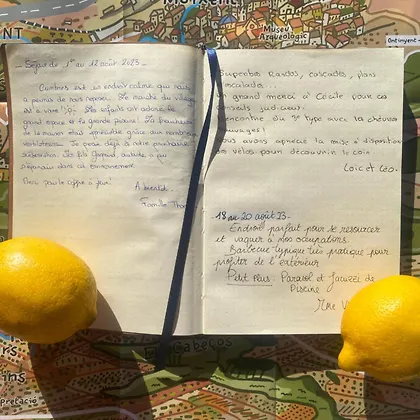 NT
Museu
Arqueològic
Ontinyent
- Séjour du 1er au 12 août 2023 -
est un endroit calme qui nous
a permis de nous reposer. Le marché du village
est à voir !
grand espace et la grande piscine! La fraîcheur
de la maison était appréciable grâce aux nombreux
ventilateurs. Je pense déjà à notre prochaine
dans cet environnement.
Merci pour le coffre à fleur.
A bientôt.
Famille
Superbes Randos, cascades, plans
escalades.
grand merci à Cécile pour ces
conseils judicieux.
rencontre du 3e type avec la chèvre
sauvages!
vous avons apprécié la mise à disposition
vélos pour découvrir le coin.
Loïc et Léo.
18 au 20 août 23.
Endroit parfait pour se ressourcer
et vaquer à nos occupations.
Barbecue typique très pratique pour
profiter de l'extérieur
Petit plus: Parasol et Jacuzzi de
Piscine
Cabeços